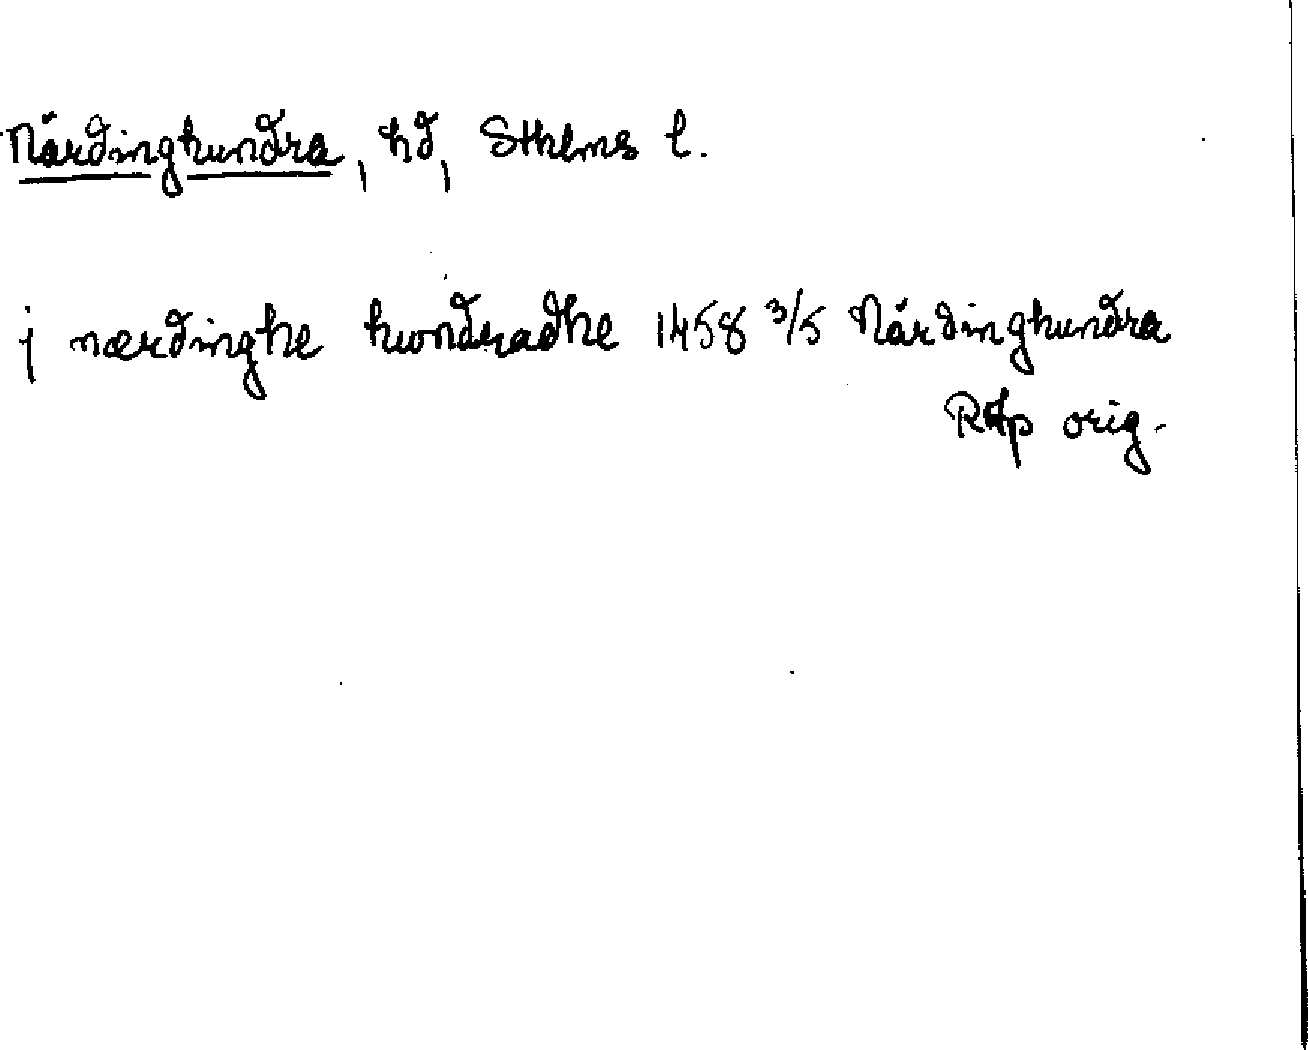 Närdinghundra, hd, Sthlms l.
j nærdinghe hwndradhe 1458 3/5 Närdinghundra
RAp orig.